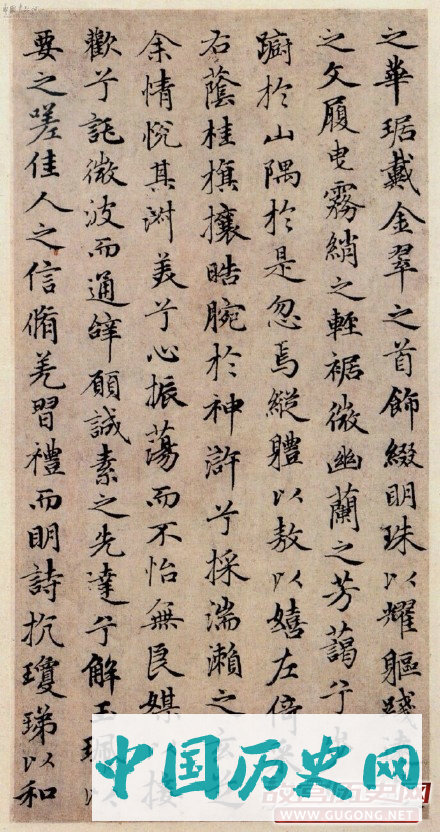 之華琚戴金翠之首飾綴明珠以耀軀踐
之文履曳霧綃之輕裾微幽蘭之芳藹兮
躕於山隅於是忽焉縱體以敖以嬉左倚
右蔭桂旗攘皓腕於神滸兮採湍瀨之
余情悅其淑美兮心振蕩而不怡無良媒以接
歡兮託微波而通辭願誠素之先達兮解玉珮以
要之嗟佳人之信脩羌習禮而明詩抗瓊珶以和
中国历史网
WWW.GUGONG.NET